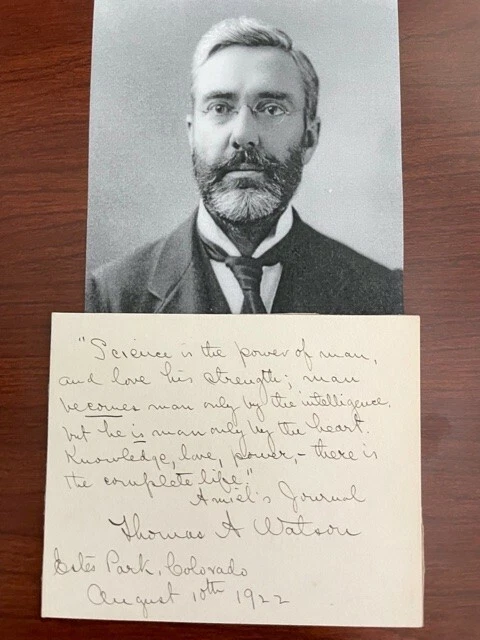 "Science is the power of man,
and love his strength; man
becomes man only by the intelligence,
but he is man only by the heart.
Knowledge, love, power, – there is
the complete life."
Amiel's Journal
Thomas A Watson
Estes Park, Colorado
August 10th 1922